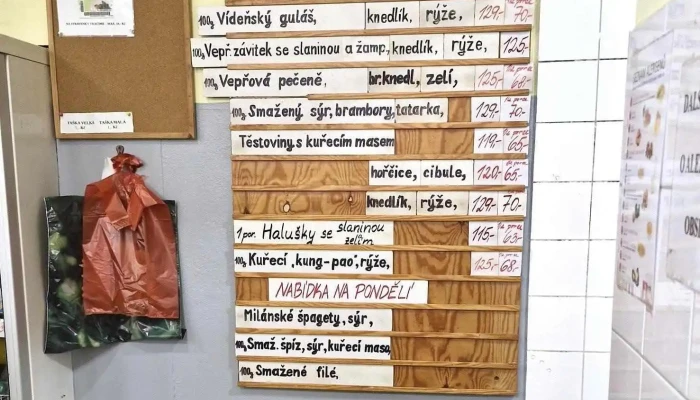 100g Vídeňský guláš, knedlík, rýže, 129,- 70,-
100g Vepř. závitek se slaninou a žamp., knedlík, rýže, 125,-
100g Vepřová pečeně, br. knedl, zelí, 125,- 68,-
100g Smažený sýr, brambory, tatarka, 129,- 1/2 porce 70,-
Těstoviny s kuřecím masem 119,- 1/2 porce 65,-
hořčice, cibule, 120,- 1/2 porce 65,-
knedlík, rýže, 129,- 1/2 porce 70,-
1 por. Halušky se slaninou zelím 115,- 1/2 porce 63,-
100g Kuřecí „kung-pao", rýže, 125,- 1/2 porce 68,-
NABÍDKA NA PONDĚLÍ
Milánské špagety, sýr,
100g Smaž. špíz, sýr, kuřecí maso,
100g Smažené filé,
TAŠKA VELKÁ TAŠKA MALÁ
Kč Kč